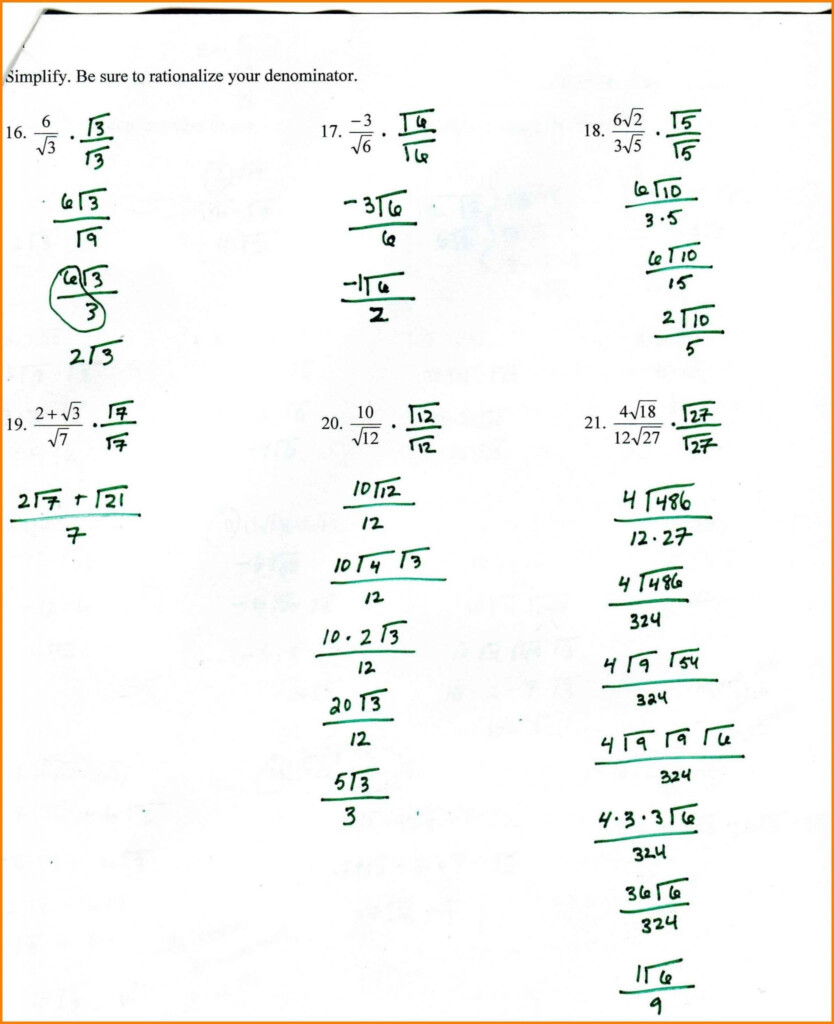 Simplify. Be sure to rationalize your denominator.
16. 6/√3 · √3/√3
6√3/√9
6√3/3
2√3
17. -3/√6 · √6/√6
-3√6/6
-1√6/2
18. 6√2/3√5 · √5/√5
6√10/3·5
6√10/15
2√10/5
19. 2+√3/√7 · √7/√7
2√7 + √21/7
20. 10/√12 · √12/√12
10√12/12
10√4 √3/12
10·2√3/12
20√3/12
5√3/3
21. 4√18/12√27 · √27/√27
4√486/12·27
4√486/324
4√9 √54/324
4√9 √9 √6/324
4·3·3√6/324
36√6/324
1√6/9